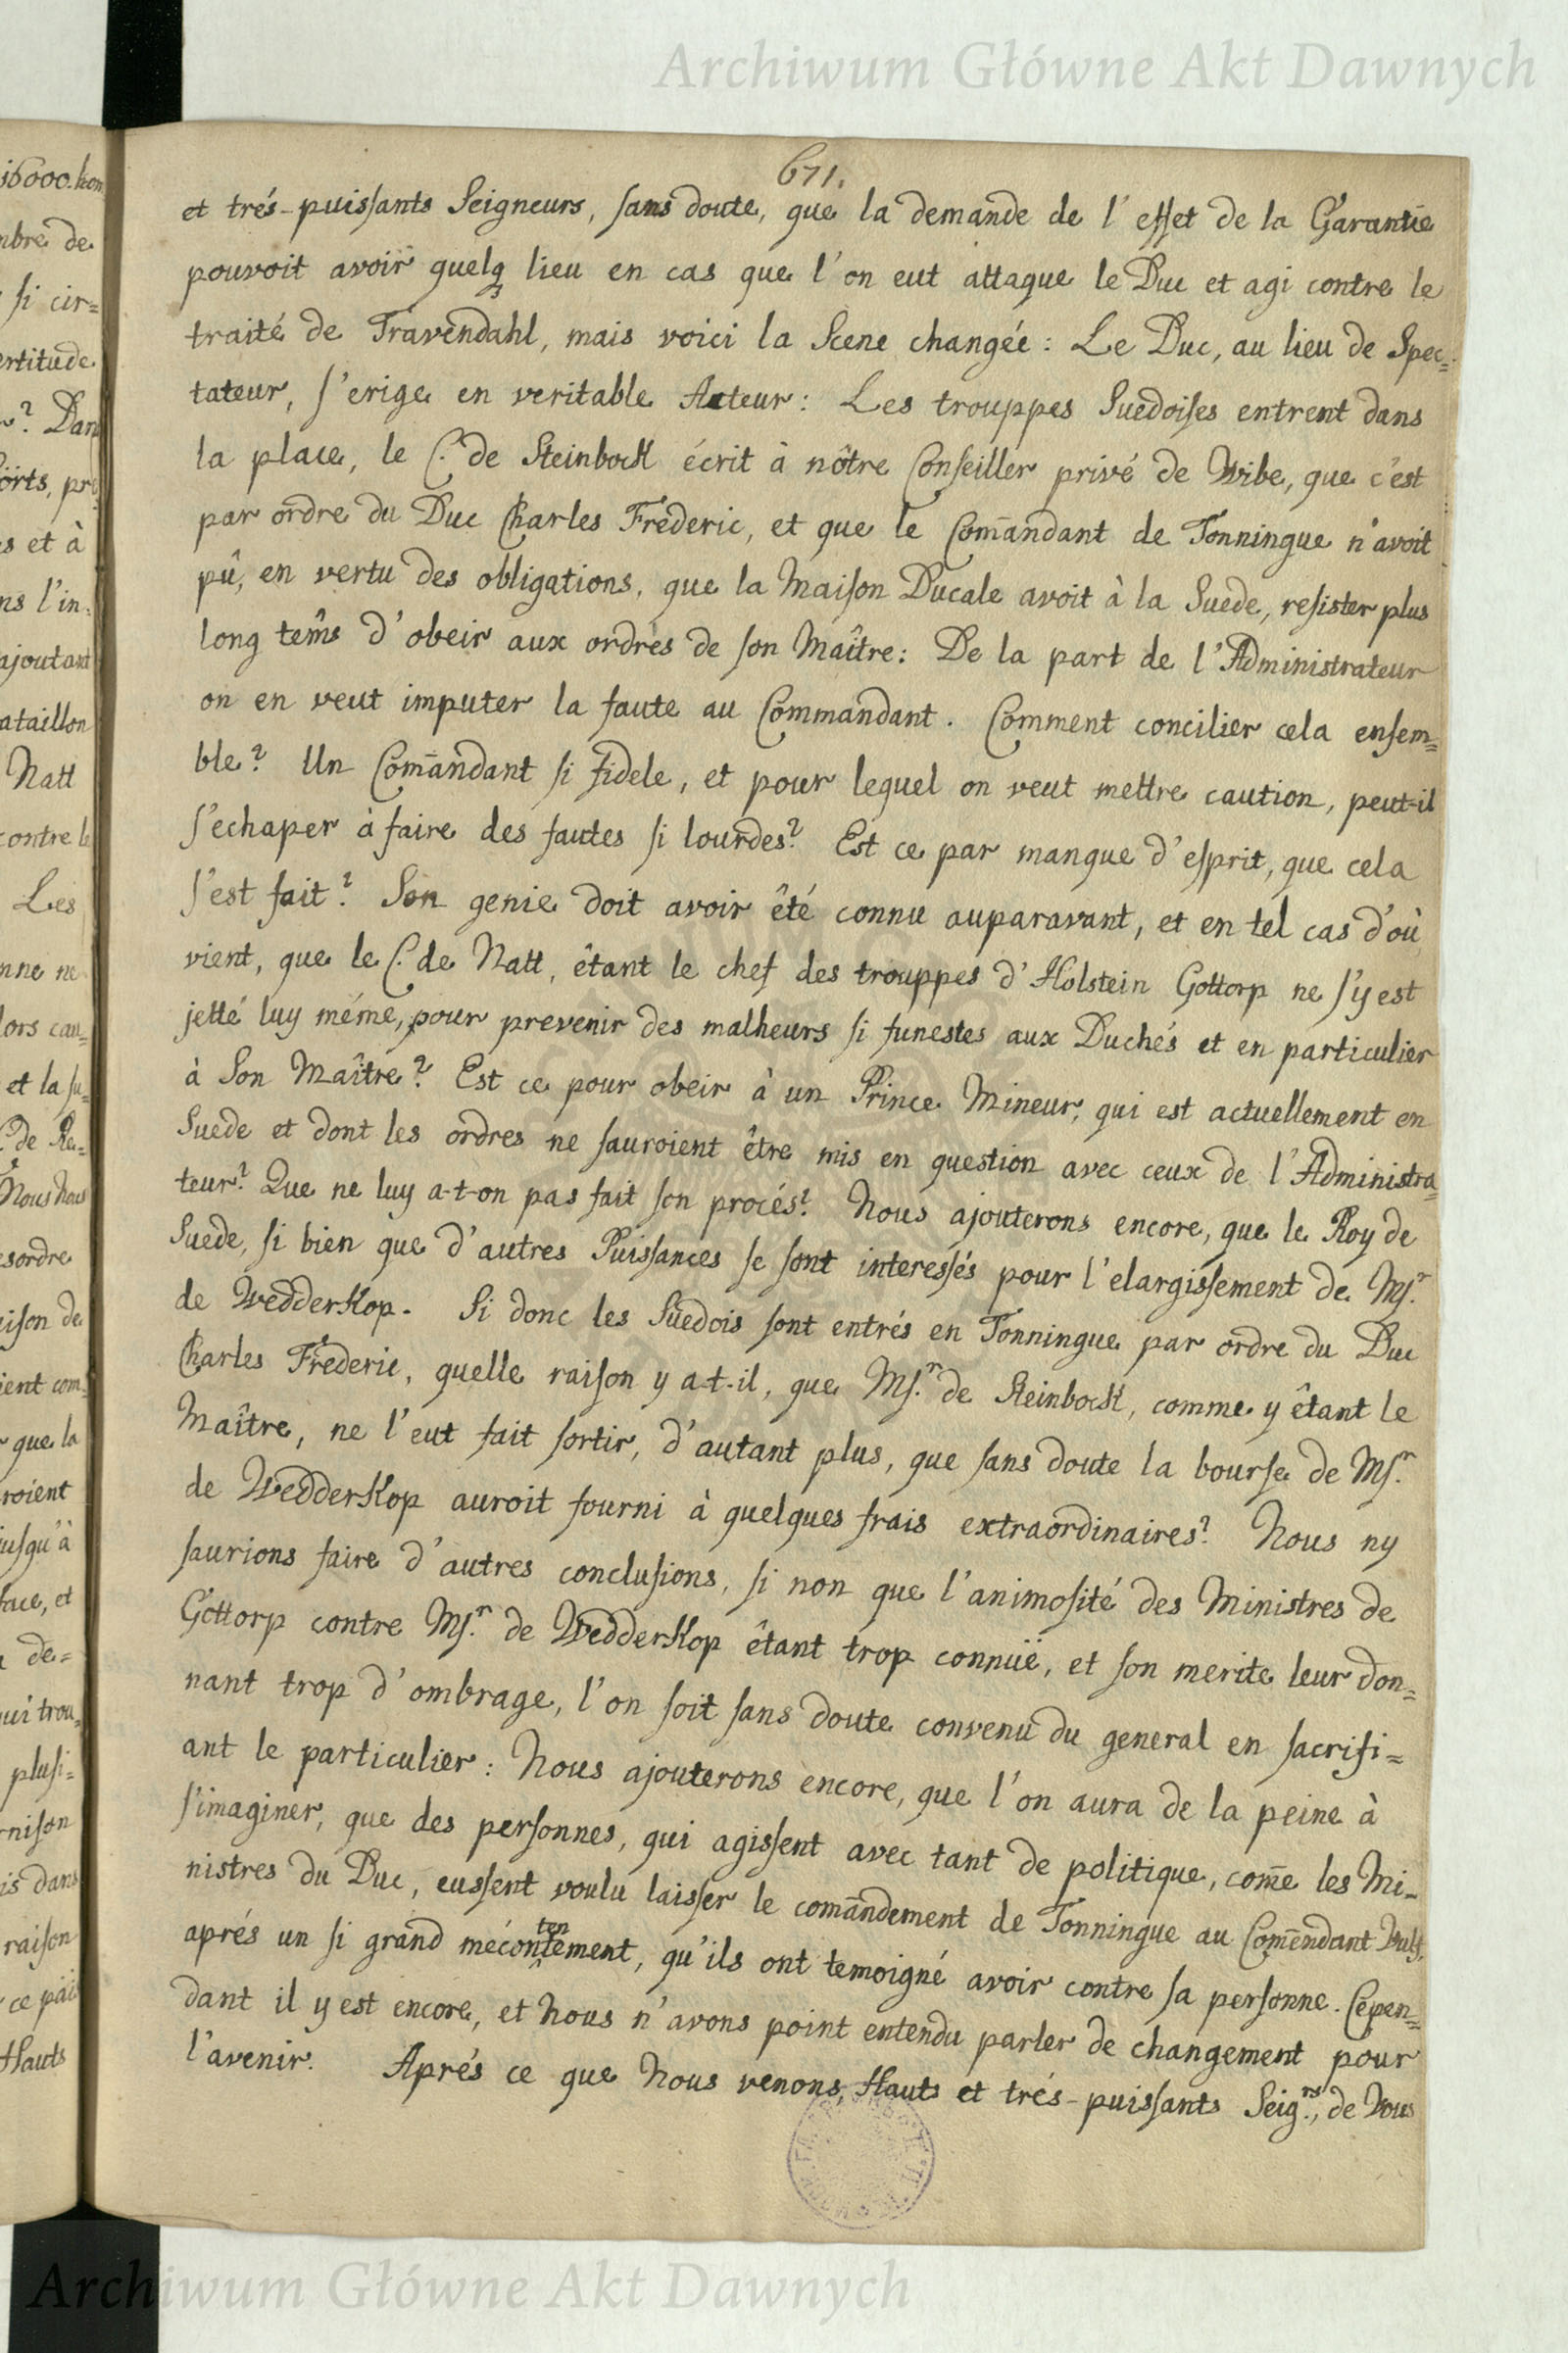 Archiwum Główne Akt Dawnych
671.
et trés-puissants Seigneurs, sans doute, que la demande de l'effet de la Garantie
pouvoit avoir quelq lieu en cas que l'on eut attaque le Duc et agi contre le
traité de Travendahl, mais voici la Scene changée: Le Duc, au lieu de Spec=
tateur, s'erige en veritable Acteur: Les trouppes Suedoises entrent dans
la place, le C. de Steinbock écrit à nôtre Conseiller privé de Wibe, que c'est
par ordre du Duc Charles Frederic, et que le Com̄andant de Tonningue n'avoit
pû, en vertu des obligations, que la Maison Ducale avoit à la Suede, resister plus
long tem̂s d'obeir aux ordres de son Maître: De la part de l'Administrateur
on en veut imputer la faute au Commandant. Comment concilier cela ensem=
ble? Un Com̄andant si fidele, et pour lequel on veut mettre caution, peut-il
s'echaper à faire des fautes si lourdes? Est ce par manque d'esprit, que cela
s'est fait? Son genie doit avoir êté connu auparavant, et en tel cas d'où
vient, que le C. de Natt, êtant le chef des trouppes d'Holstein Gottorp ne s'y est
jetté luy méme, pour prevenir des malheurs si funestes aux Duchés et en particulier
à Son Maître? Est ce pour obeir à un Prince Mineur, qui est actuellement en
Suede et dont les ordres ne sauroient être mis en question avec ceux de l'Administra=
teur? Que ne luy a-t-on pas fait son procés? Nous ajouterons encore, que le Roy de
Suede, si bien que d'autres Puissances se sont interessés pour l'elargissement de Ms.r
de Wedderkop. Si donc les Suedois sont entrés en Tonningue par ordre du Duc
Charles Frederic, quelle raison y a-t-il, que Ms.r de Steinbock, comme y êtant le
Maître, ne l'eut fait sortir, d'autant plus, que sans doute la bourse de Ms.r
de Wedderkop auroit fourni à quelques frais extraordinaires? Nous ny
saurions faire d'autres conclusions, si non que l'animosité des Ministres de
Gottorp contre Ms.r de Wedderkop êtant trop connuë, et son merite leur don=
nant trop d'ombrage, l'on soit sans doute convenu du general en sacrifi=
ant le particulier: Nous ajouterons encore, que l'on aura de la peine à
s'imaginer, que des personnes, qui agissent avec tant de politique, com̄e les Mi=
nistres du Duc, eussent voulu laisser le com̄andement de Tonningue au Com̄endant
aprés un si grand mécontentement, qu'ils ont temoigné avoir contre sa personne. Cepen=
dant il y est encore, et Nous n'avons point entendu parler de changement pour
l'avenir. Aprés ce que Nous venons, Hauts et trés-puissants Seig.rs, de Vous
Archiwum Główne Akt Dawnych